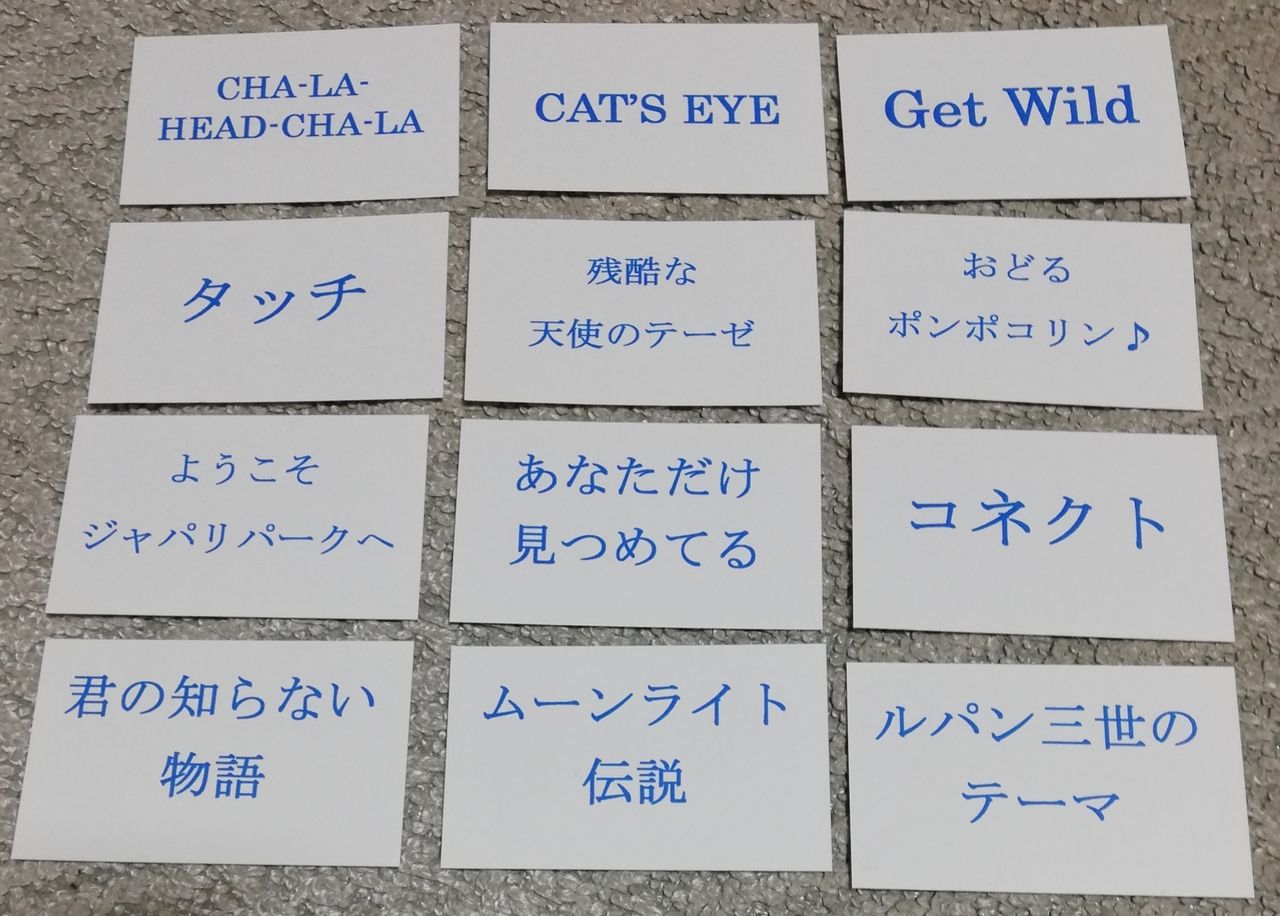 CHA-LA-
HEAD-CHA-LA
CAT'S EYE
Get Wild
タッチ
残酷な
天使のテーゼ
おどる
ポンポコリン♪
ようこそ
ジャパリパークへ
あなただけ
見つめてる
コネクト
君の知らない
物語
ムーンライト
伝説
ルパン三世の
テーマ